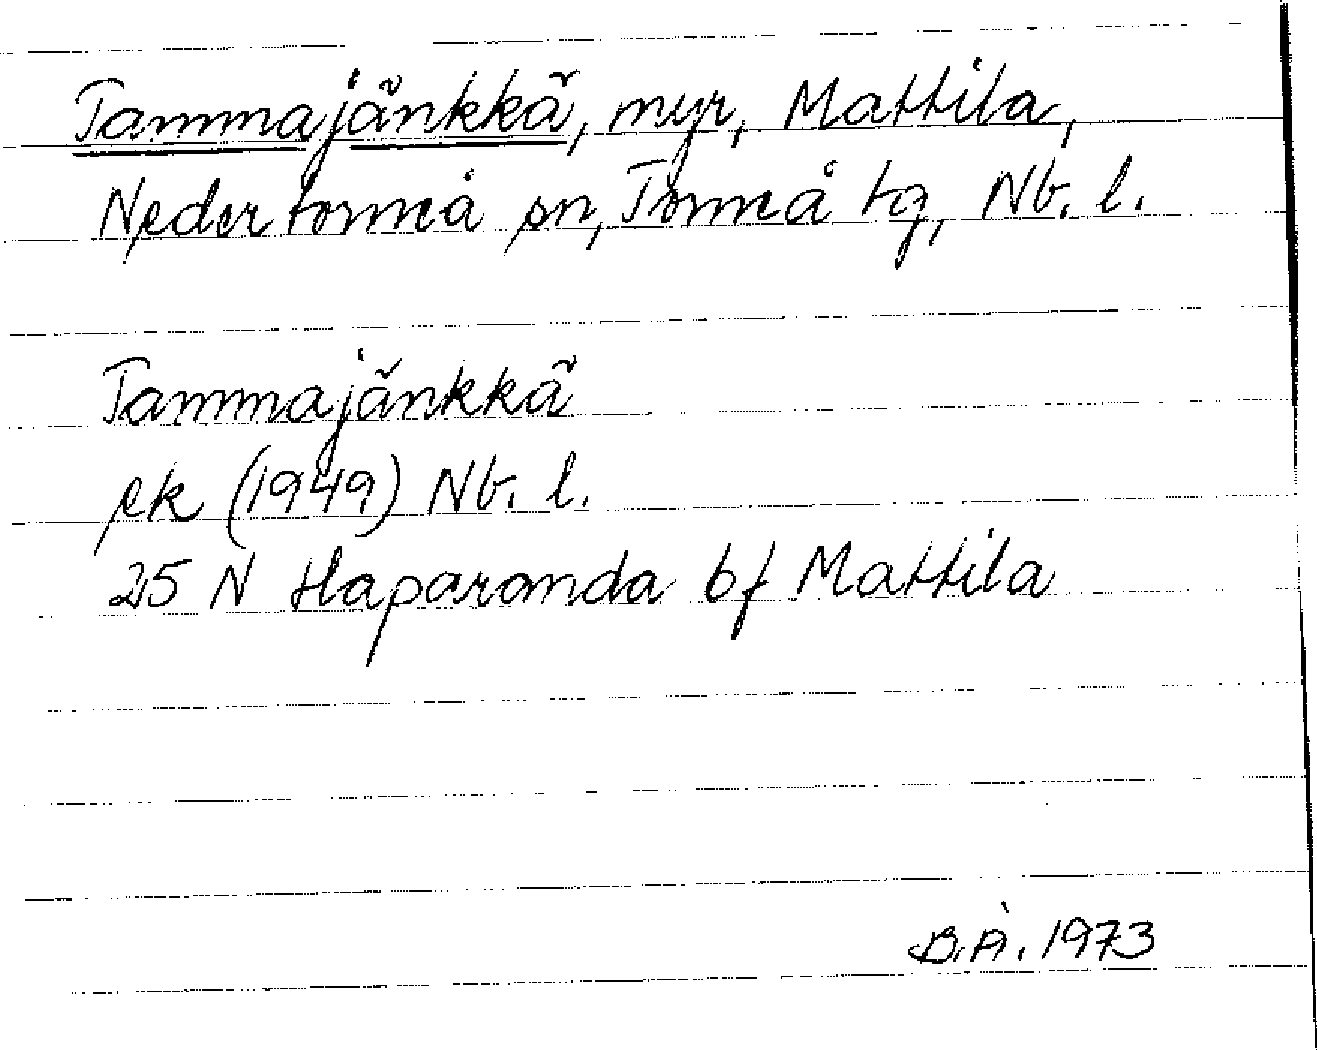 Tammajänkkä, myr, Mattila,
Nedertorneå sn, Torneå tg, Nb. l.
Tammajänkkä
ek (1949) Nb. l.
25 N Haparanda bf Mattila
B.Å. 1973